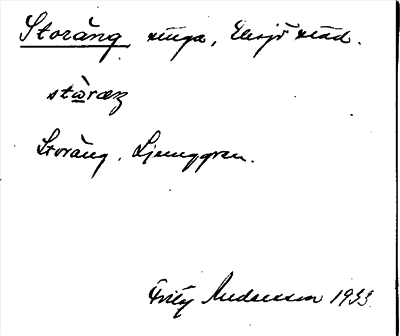 Storäng, äng, Eksjö stad.
stòræŋ
Storäng. Ljunggren.
Fritz Andersson 1933